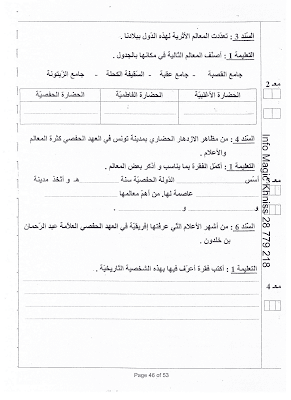 السّند 3 : تعدّدت المعالم الأثرية لهذه الدّول ببلادنا .
التعليمة 1 : أصنّف المعالم التالية في مكانها بالجدول .
جامع القصبة - جامع عقبة - السقيفة الكحلة - جامع الزّيتونة
مع 2
الحضارة الأغلبيّة
الحضارة الفاطميّة
الحضارة الحفصيّة
السّند 4 : من مظاهر الازدهار الحضاري بمدينة تونس في العهد الحفصي كثرة المعالم
والأعلام .
التعليمة 1 : أكمل الفقرة بما يناسب و أذكر بعض المعالم .
أسّس الدّولة الحفصيّة سنة هـ و اتّخذ مدينة
عاصمة لها. من أهمّ معالمها
و و .
السّند 6 : من أشهر الأعلام التي عرفتها إفريقيّة في العهد الحفصي العلاّمة عبد الرّحمان
بن خلدون .
التعليمة 1 : أكتب فقرة أعرّف فيها بهذه الشخصية التّاريخيّة .
مع 4
Info Magic Khniss 28 779 218
Page 46 of 53